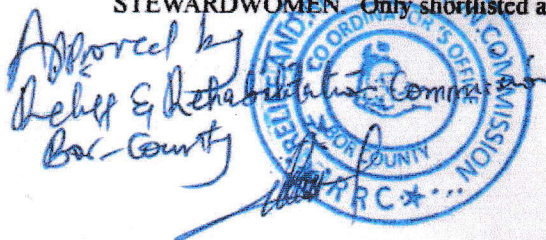 STEWARDWOMEN Only shortlisted a
Approved by
Relief & Rehabilitation Commission
Bor-County
RELIEF AND COMMISSION
CO ORDINATOR'S OFFICE
BOR COUNTY
RRC